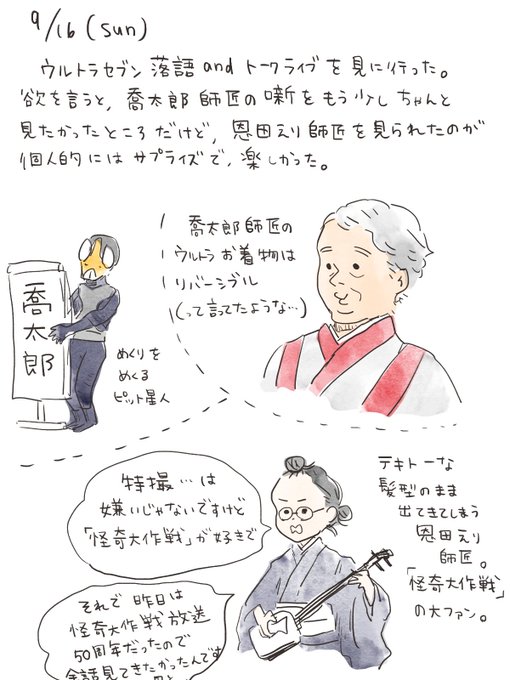 9/16(sun)
ウルトラセブン落語andトークライブを見に行った。
欲を言うと、喬太郎師匠の噺をもう少しちゃんと
見たかったところだけど、恩田えり師匠を見られたのが
個人的にはサプライズで、楽しかった。
喬太郎師匠の
ウルトラお着物は
リバーシブル
(って言ってたような…)
喬太郎
めくりを
めくる
ピット星人
特撮…は
嫌いじゃないですけど
「怪奇大作戦」が好きで
テキトーな
髪型のまま
出てきてしまう
恩田えり
師匠。
「怪奇大作戦」
の大ファン。
それで昨日は
怪奇大作戦放送
50周年だったので
全話見てきたかったんです